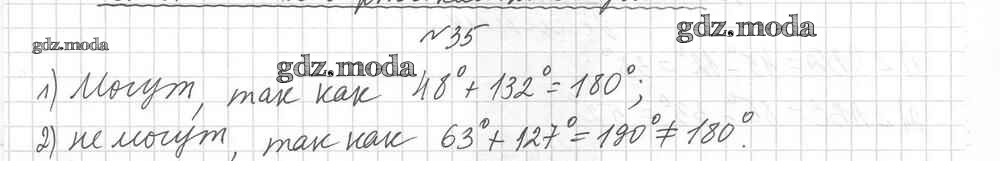 №35
gdz.moda
gdz.moda
gdz.moda
1) Могут, так как 48° + 132° = 180°;
2) не могут, так как 63° + 127° = 190° ≠ 180°.